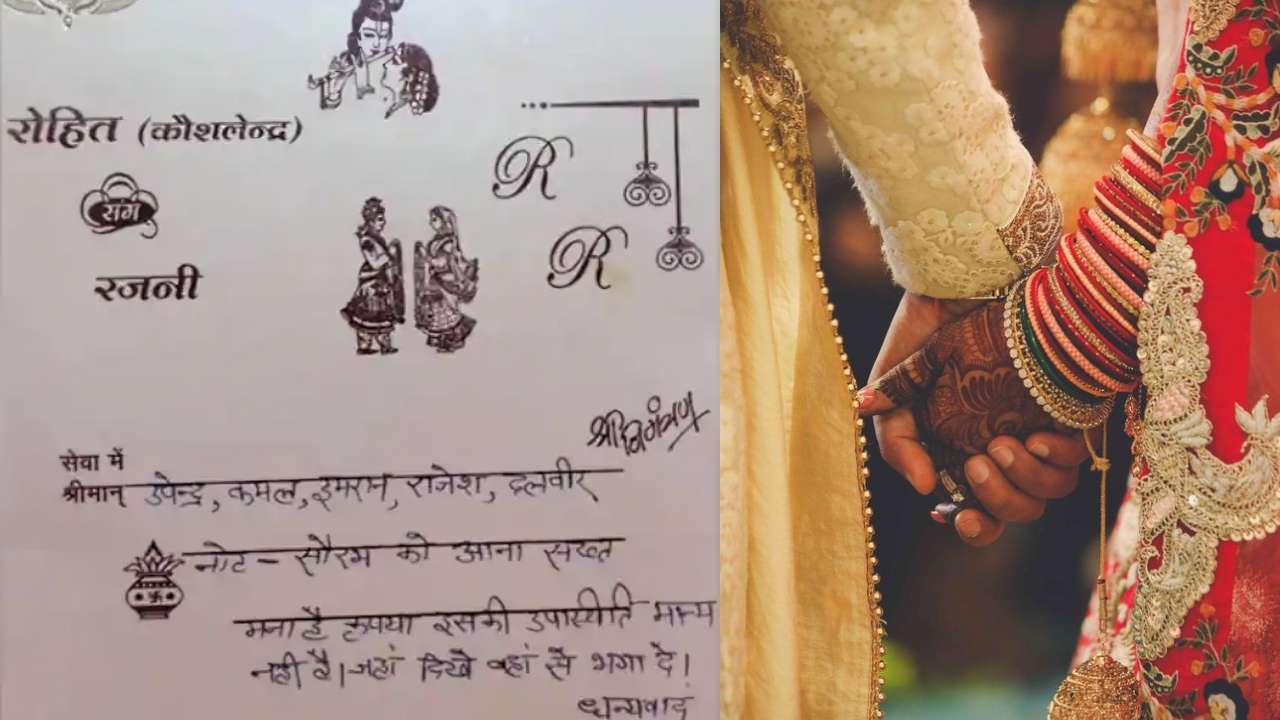 रोहित (कौशलेन्द्र)
संग
रजनी
R
R
श्री निमंत्रण
सेवा में
श्रीमान् उपेन्द्र, कमल, इमरान, राजेश, दलवीर
नोट - सौरभ को आना सख्त
मना है कृपया इसकी उपास्यीति मान्य
नहीं है। जहां दिखे वहां से भगा दे।
धन्यवाद